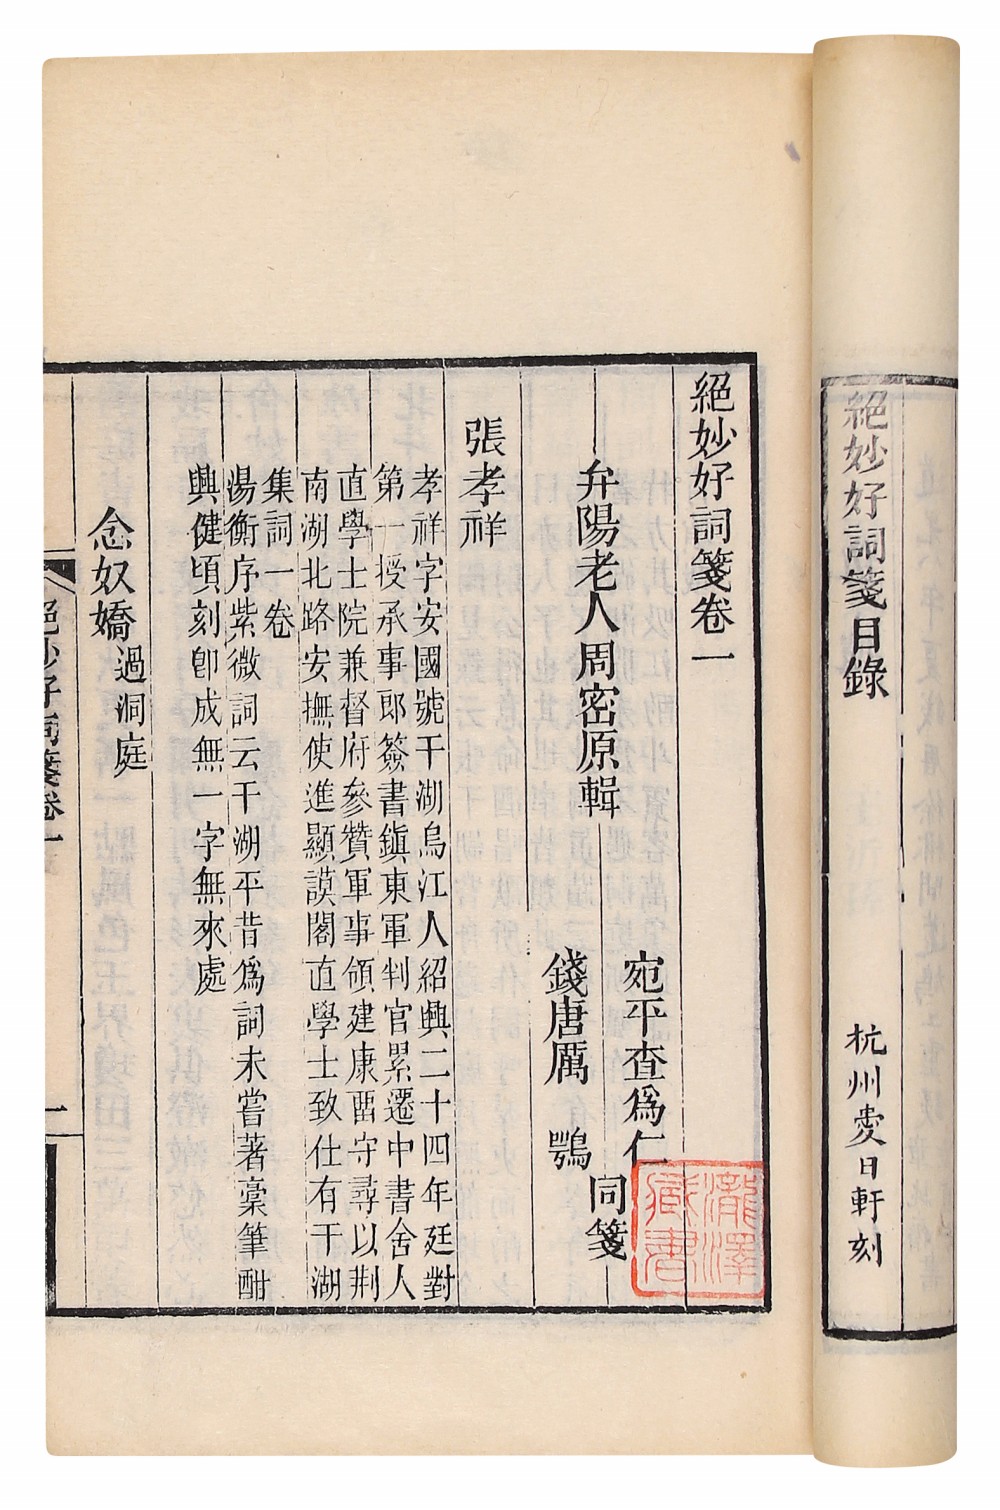 絕妙好詞箋目錄
杭州愛日軒刻
絕妙好詞箋卷一
弁陽老人周密原輯
宛平查爲仁
錢唐厲鶚
同箋
張孝祥
孝祥字安國號于湖烏江人紹興二十四年廷對
第一授承事郎簽書鎭東軍判官累遷中書舍人
直學士院兼督府參贊軍事領建康畱守尋以荆
南湖北路安撫使進顯謨閣直學士致仕有于湖
集詞一卷
湯衡序紫微詞云于湖平昔爲詞未嘗著稾筆酣
興健頃刻卽成無一字無來處
念奴嬌過洞庭
絕妙好詞箋卷一
一
瀧澤
藏書